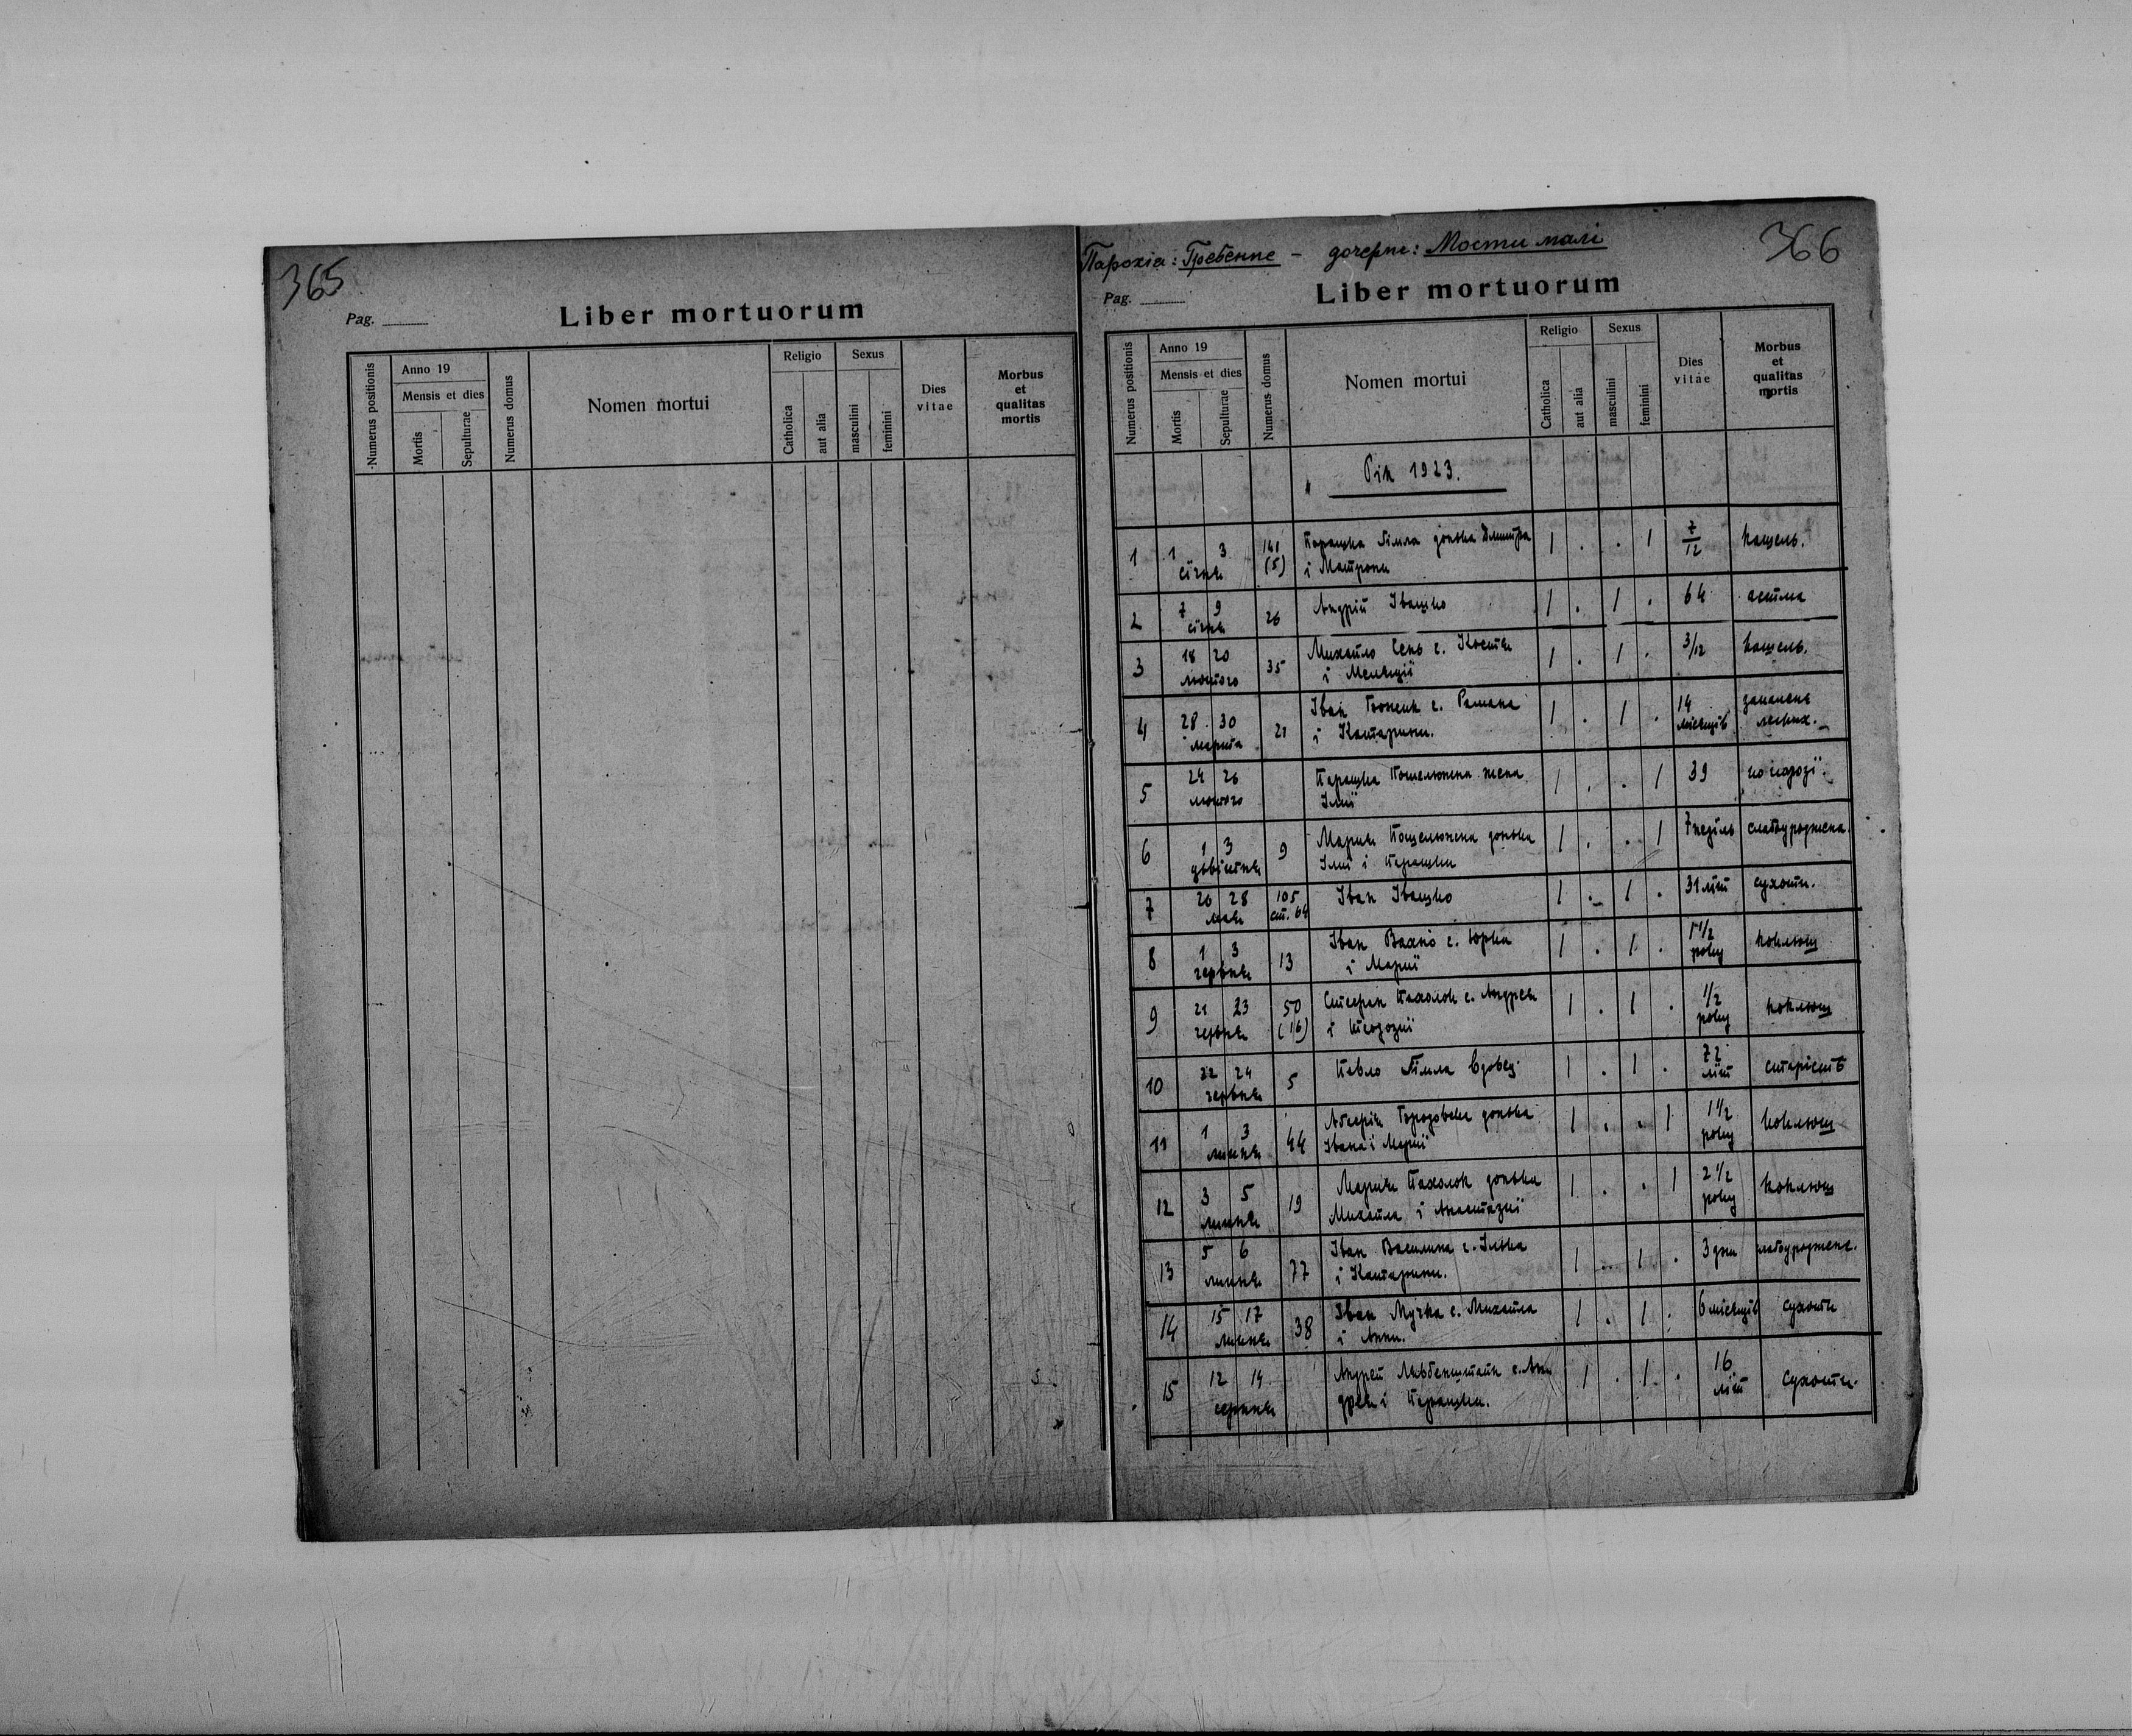 365
Pag.
Liber mortuorum
Numerus positionis
Anno 19
Mensis et dies
Mortis
Sepulturae
Numerus domus
Nomen mortui
Religio
Catholica
aut alia
Sexus
masculini
feminini
Dies
vitae
Morbus
et
qualitas
mortis
Парохія: Гребенне – дочерне: Мости малі
366
Pag.
Liber mortuorum
Numerus positionis
Anno 19
Mensis et dies
Mortis
Sepulturae
Numerus domus
Nomen mortui
Religio
Catholica
aut alia
Sexus
masculini
feminini
Dies
vitae
Morbus
et
qualitas
mortis
Рік 1923.
1 1 3 141 Парашка донька Дмитра 1 . . 1 7/12 кашель.
січня (5) і Матрони
2 7 9 26 Андрій Івашко 1 . 1 . 64 астма
січня
3 18 20 35 Михайло Сень с. Костя 1 . 1 . 3/12 кашель.
лютого і
4 28 30 21 Іван с. Романа 1 . 1 . 14 запалене
марта і Катарини. місяців легких.
5 24 26 Парашка жена 1 . . 1 39 по
лютого Ілиї
6 1 3 9 Марія донька 1 . . 1 7 неділь
цвітня Ілиї і Парашки
7 26 28 105 Іван Івашко 1 . 1 . 31 літ сухоти.
мая ст. 64
8 1 3 13 Іван Вахно с. Юрка 1 . 1 . 1 1/2 коклюш
червня і Марії року
9 21 23 50 Стефан Пахолок с. Андрея 1 . 1 . 1/2 коклюш
червня (16) і Теодозиї року
10 22 24 5 Павло вдовец 1 . 1 . 72 старість
червня літ
11 1 3 44 донька 1 . . 1 1 1/2 коклюш
липня Івана і Марії року
12 3 5 19 Марія Пахолок донька 1 . . 1 2 1/2 коклюш
липня Михайла і Анастазиї року
13 5 6 77 Іван Василина с. Ілька 1 . 1 . 3 дни
липня і Катарини.
14 15 17 38 Іван Мучка с. Михайла 1 . 1 . 6 місяців сухоти
липня і Анни.
15 12 14 Андрей с. Ан 1 . 1 . 16 сухоти.
серпня дрея і Парашки. літ